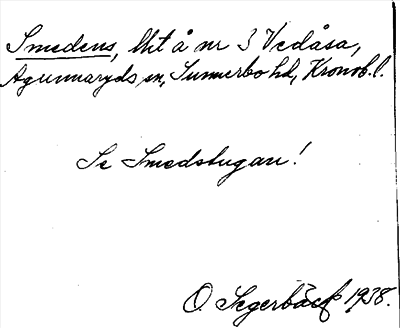 Smedens, lht å nr 3 Vedåsa,
Agunnaryds sn, Sunnerbo hd, Kronob. l.
Se Smedstugan!
O. Segerbäck 1938.